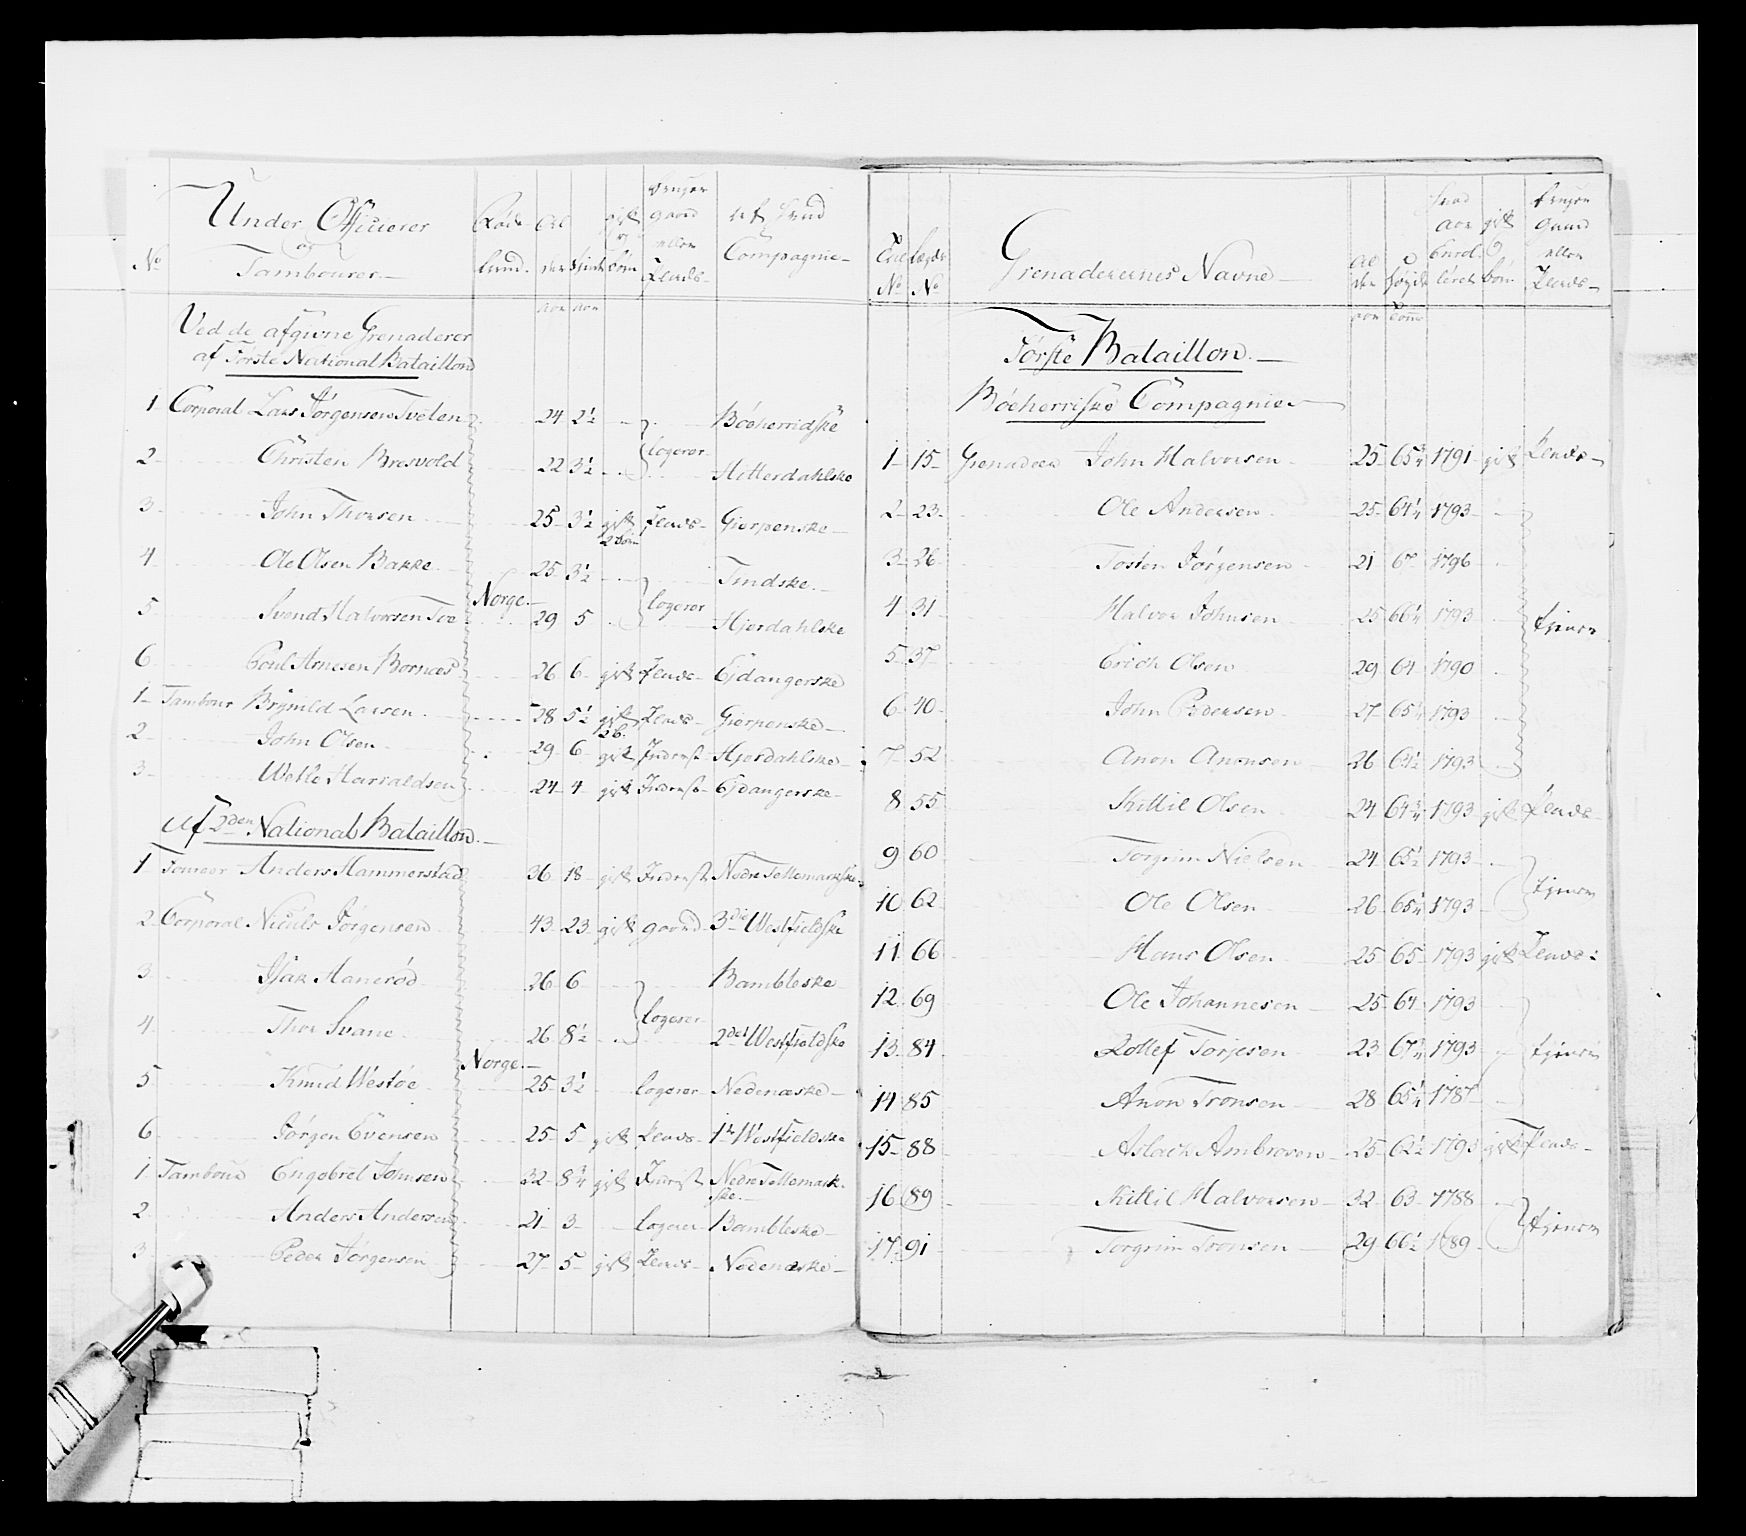 No
Under Officierer
og
Tambourer.
Föde
land.
Al
der
tient
gift
og
börn
bruger
gaard
eller
Plads
af hvad
Compagnie
aar aar
Ved de afgivne Grenaderer
af Förste National Bataillon
1 Corporal Lars Jörgensen Tveten 24 2½ Böeherridske
2 Christen Bresvold 22 3½ logerer Hitterdahlske
3 John Thorsen 25 3½ gift Plads Gierpenske
2 börn
4 Ole Olsen Bakke 25 3½ Tindske.
Norge.
5 Svend Halvorsen Toe 29 5 logerer Hjerdahlske
6 Poul Arnesen Bornæs 26 6 gift Plads Ejdangerske
1 Tambour Brynild Larsen 28 5½ gift Plads Gierpenske
2 b.
2 John Olsen 29 6 gift Inderst Hjerdahlske
3 Wetle Harraldsen 24 4 gift Inderst Ejdangerske
Af 2den National Bataillon.
1 Foureer Anders Hammerstad 36 18 gift Inderst Nedre Tellemarkske
2 Corporal Nicols Jörgensen 43 23 gift gaard 3die Westfieldske
3 Isak Hanerød 26 6 Bambleske
4 Thor Svane 26 8½ logerer 2det Westfieldske
Norge.
5 Knud Westöe 25 3½ logerer Nedenæske
6 Jörgen Evensen 25 5 gift Plads 1te Westfieldske
1 Tambour Engebret Johnsen 32 8½ gift Inderst Nedre Tellemark
ske
2 Anders Andersen 21 3 logerer Bambleske
3 Peder Jörgensen 27 5 gift Plads Nedenæske
No
Lægds
No
Grenaderernes Navne
Al
der
Höyde
hvad
aar
Enrol
leret
gift
börn
bruger
Gaard
eller
Plads
aar Tomr
Förste Bataillon.
Böeherriske Compagnie
1 15 Grenadeer John Halvorsen 25 65¾ 1791 gift Plads
2 23 Ole Andersen 25 64¼ 1793
3 26 Tosten Jörgensen 21 67 1796
4 31 Halvor Johnsen 25 66¼ 1793 tjener
5 37 Erich Olsen 29 64 1790
6 40 John Pedersen 27 65¼ 1793
7 52 Anon Anonsen 26 64½ 1793
8 55 Kittil Olsen 24 64¾ 1793 gift Plads
9 60 Torgrim Nielsen 24 65½ 1793
tjener
10 62 Ole Olsen 26 65¼ 1793
11 66 Hans Olsen 25 65 1793 gift Plads
12 69 Ole Johannesen 25 64 1793
13 84 Rollef Torjesen 23 67¾ 1793 tjener
14 85 Anon Tronsen 28 65¼ 1787
15 88 Aslack Ambrosen 25 62½ 1793 gift Plads
16 89 Kittil Halvorsen 32 63 1788
tjener
17 91 Torgrim Tronsen 29 66½ 1789